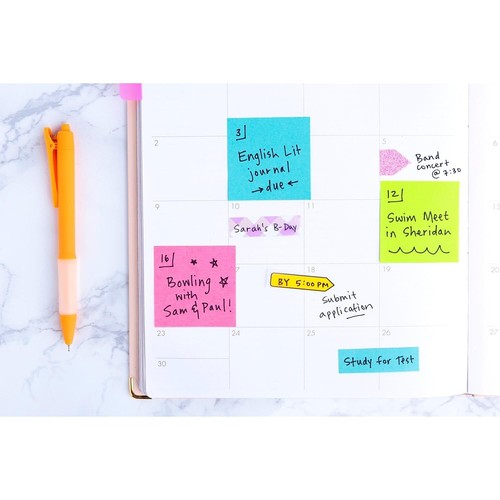 2
3
English Lit
journal
→due←
5
Band
concert
@ 7:30
6
12
Swim Meet
in Sheridan
9
10
11
Sarah's B-Day
13
16
Bowling
with
Sam & Paul!
17
18
BY 5:00PM
Submit
application
19
23
24
25
26
27
Study for Test
30